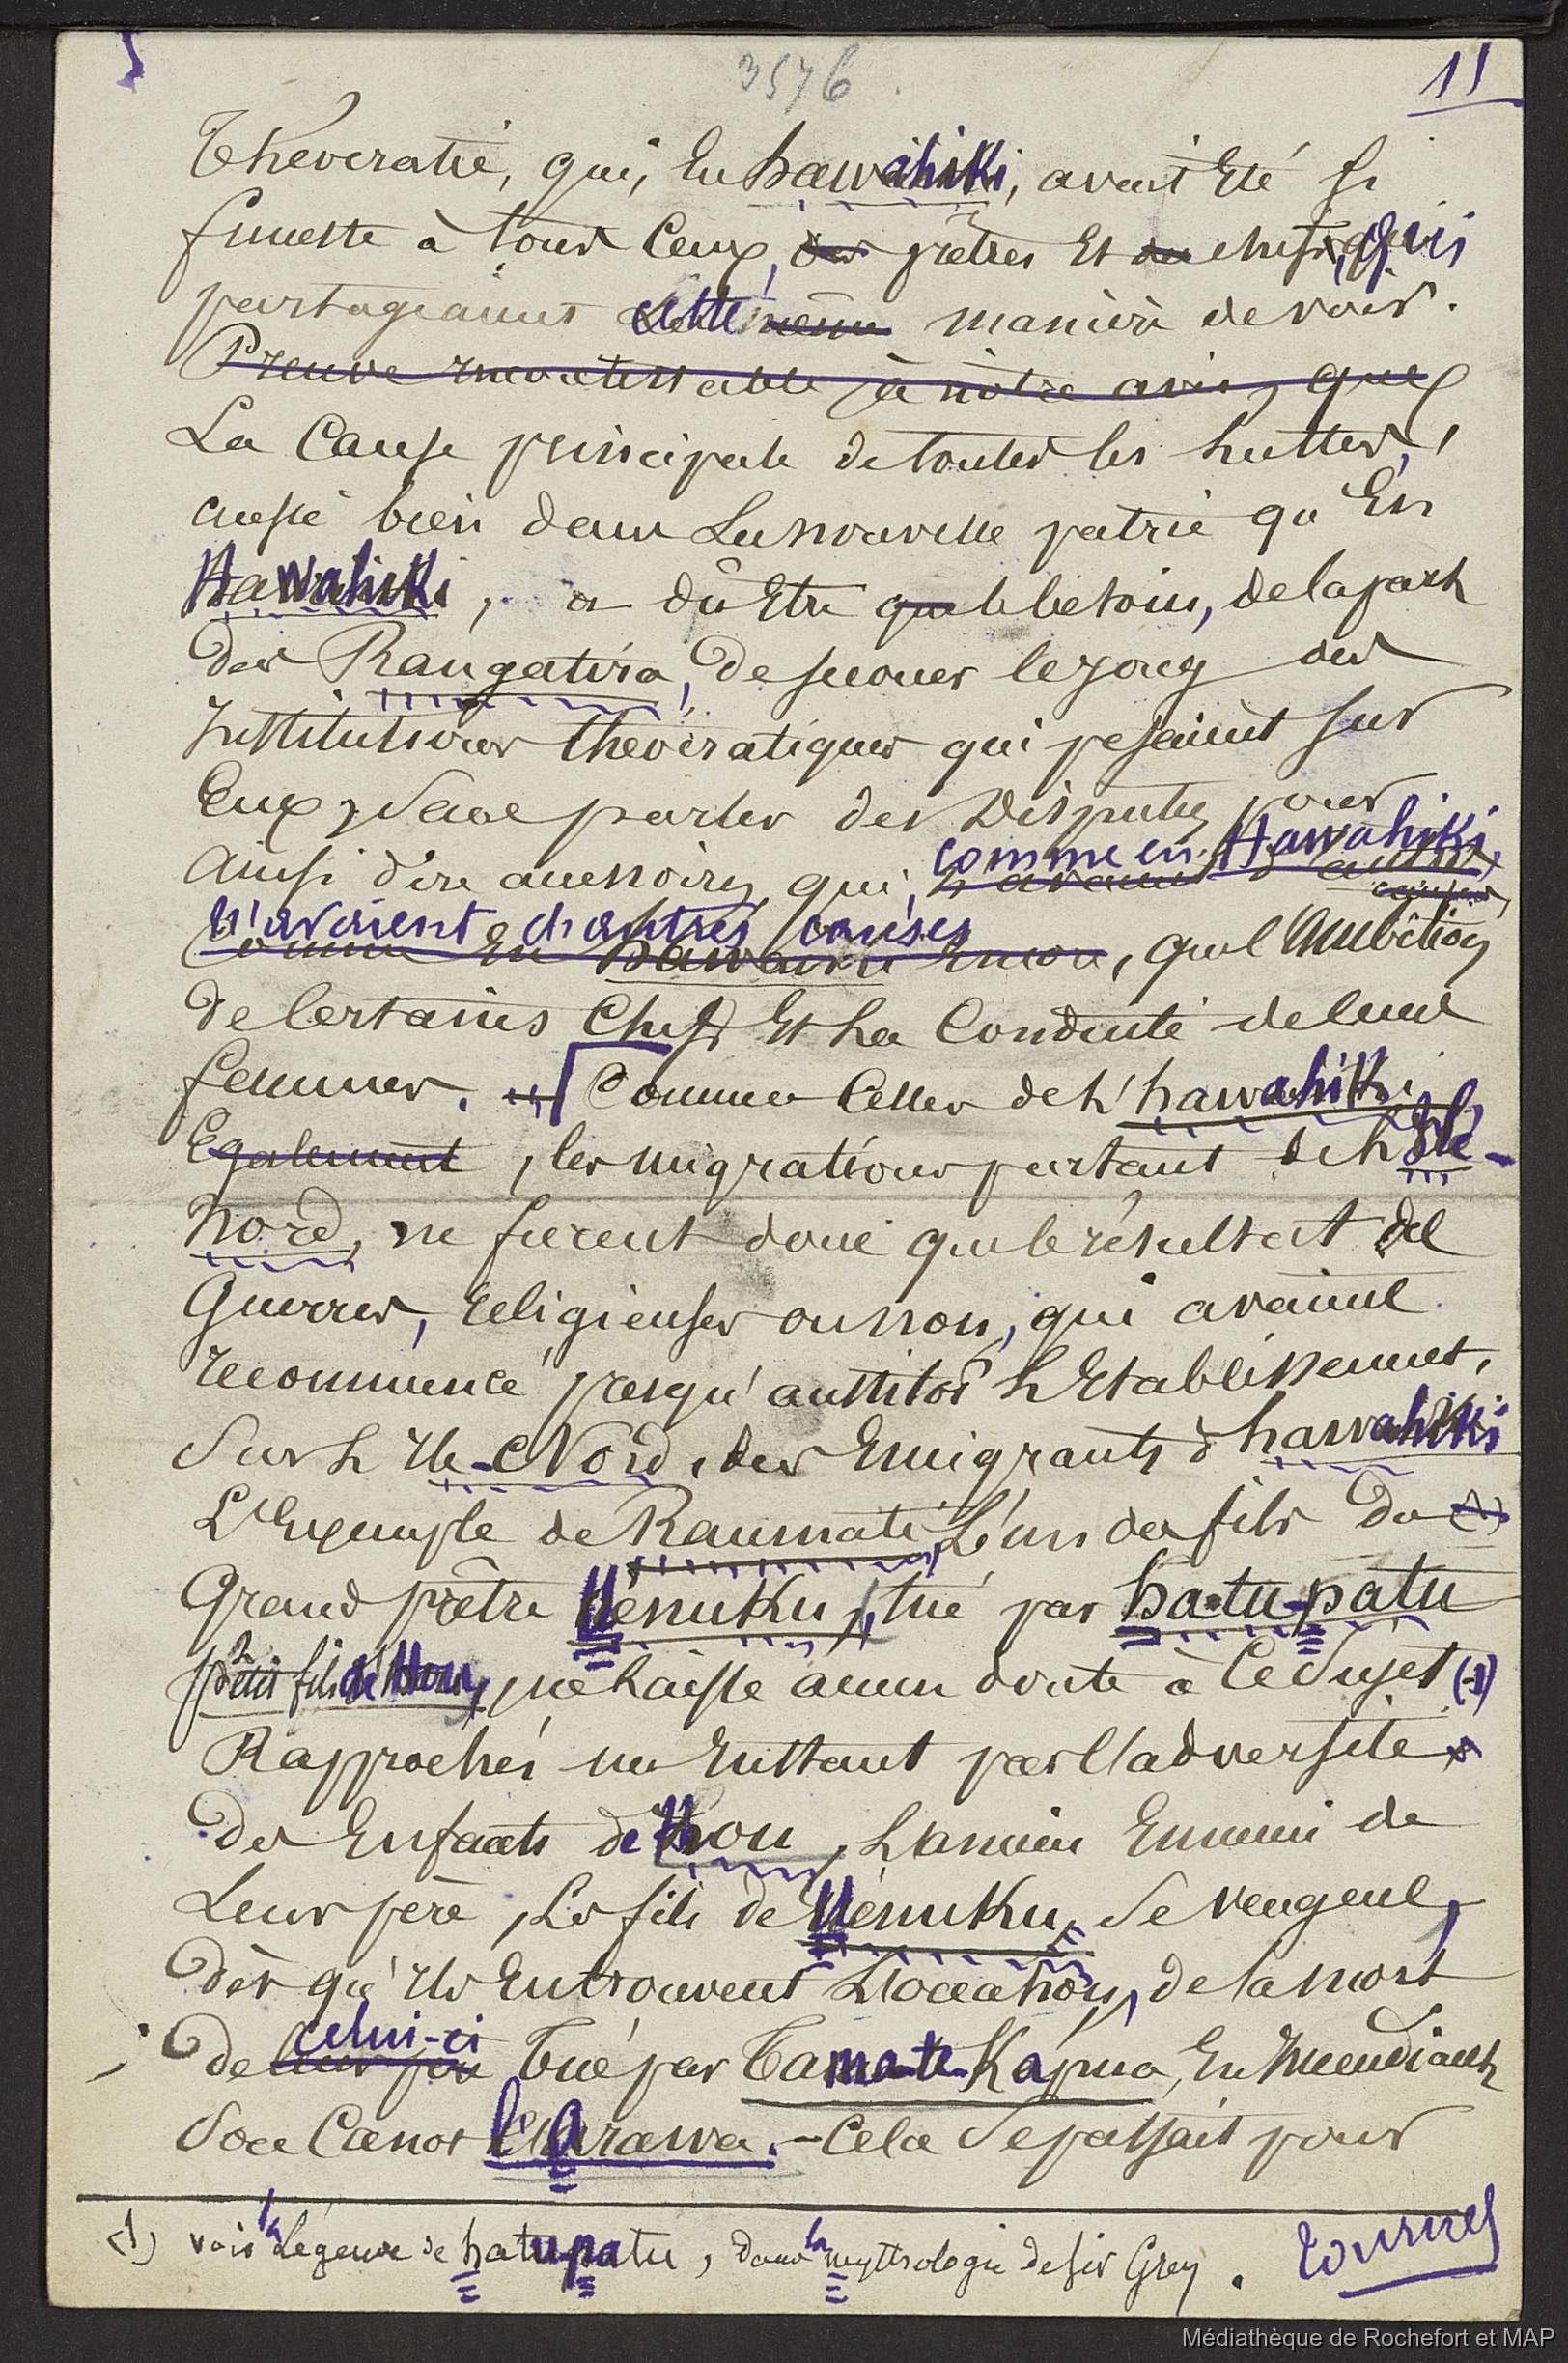 3576
11
Théocratie, qui, en Hawahiki, avait été si
funeste à tous ceux, des prêtres et des chefs, qui
partageaient cette même manière de voir.
Preuve incontestable à notre avis, que
La Cause principale de toutes les luttes,
aussi bien dans la nouvelle patrie qu'en
Hawahiki, a dû être que le besoin, de la part
des Rangatira, de secouer le joug des
Institutions théocratiques qui pesaient sur
eux, sans parler des disputes pour
ainsi dire accessoires, qui, comme en Hawahiki,
n'avaient d'autres causes
n'avaient d'autres causes
Comme en Hawaiki encore, que l'ambition
de certains Chefs et la Conduite de leurs
femmes. Comme celles de l'hawahiki
Egalement, les migrations partant de l'Ile-
Nord, ne furent donc que le résultat des
Guerres, religieuses ou non, qui avaient
recommencé presqu'aussitôt l'Etablissement,
Sur l'Ile-Nord, des Emigrants d'hawahiki
L'Exemple de Raumati, L'un des fils du (1)
Grand prêtre Uénuku, tué par hatu-patu
petit fils de Hou, ne laisse aucun doute à ce sujet (1)
Rapprochés un instant par l'adversité
des Enfants de Hou, L'ancien Ennemi de
Leur père, les fils de Uénuku, se vengent,
dès qu'ils en trouvent L'occasion, de la mort
de leur père celui-ci tué par Tamate Kapua, en incendiant
son Canot l'Arawa. - Cela se passait pour
(1) voir la Légende de hatupatu, dans la mythologie de sir Grey.
tournez
Médiathèque de Rochefort et MAP